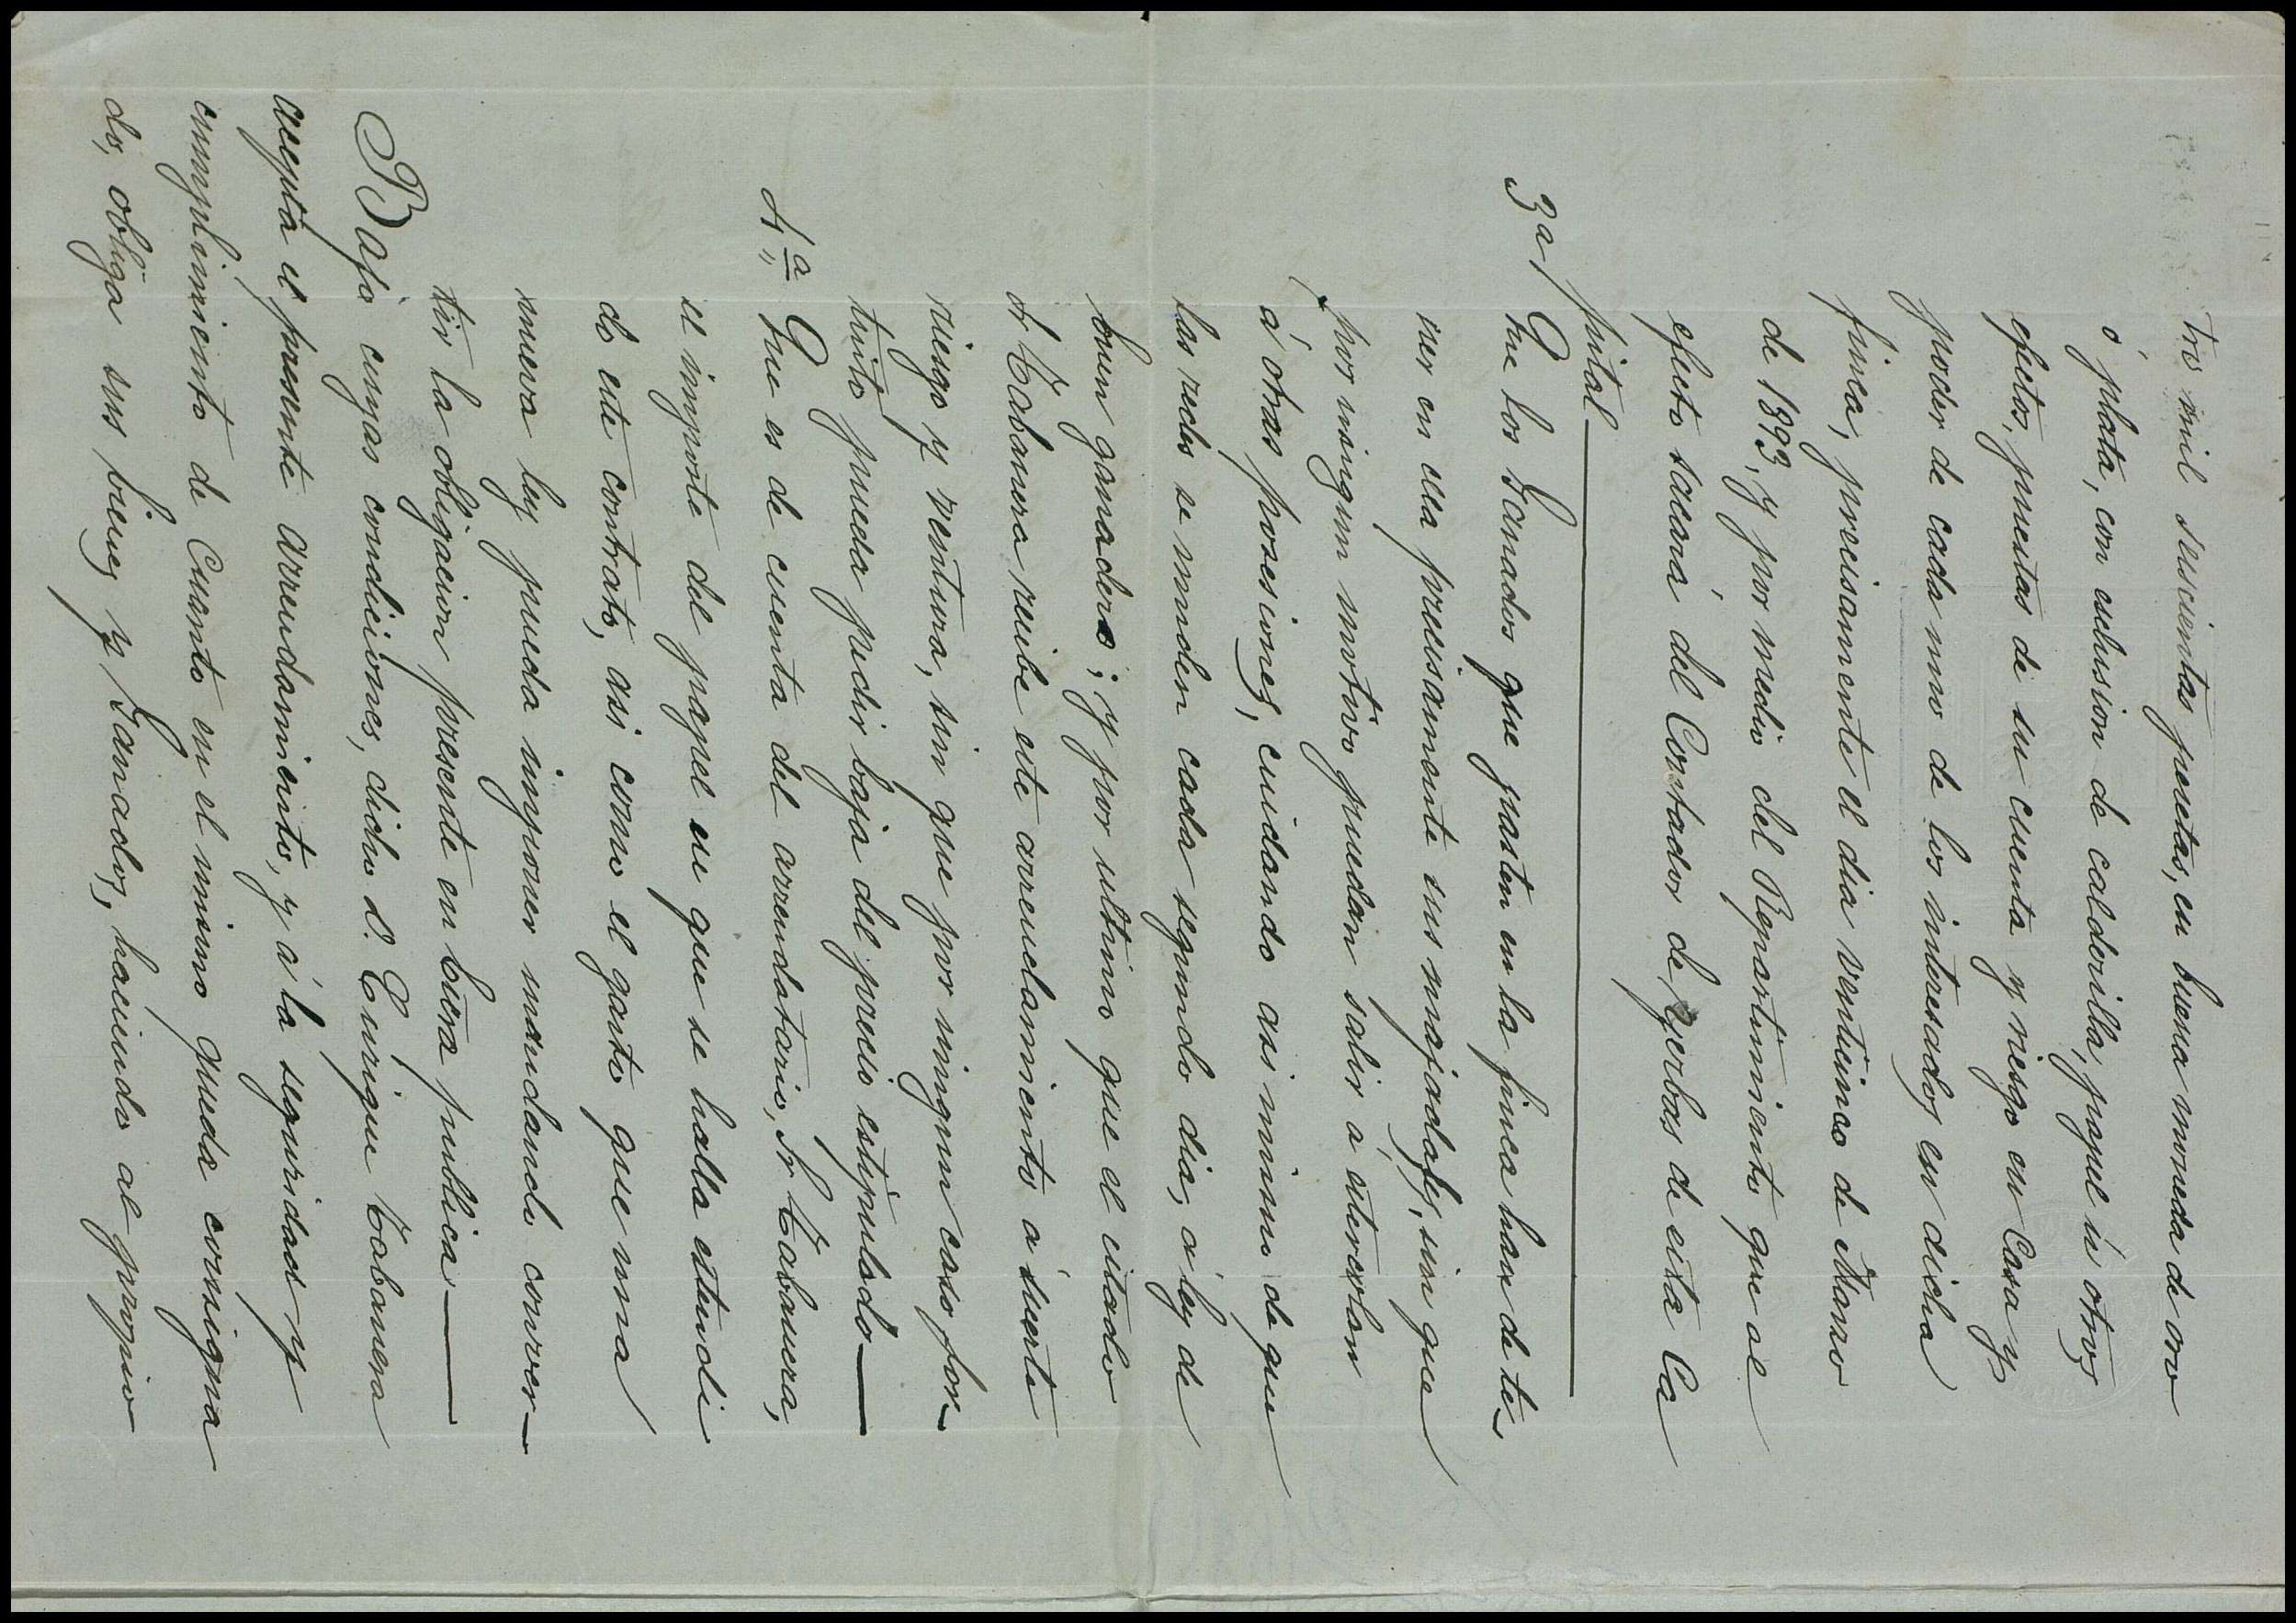 tro mil seiscientas pesetas, en buena moneda de oro
ó plata, con exclusion de calderilla, papel ú otros
efectos, puestas de su cuenta y riesgo en Casa y
poder de cada uno de los interesados en dicha
finca, precisamente el dia venticinco de Marzo
de 1893, y por medio del Repartimiento que al
efecto sacará del Contador de yerbas de esta Ca
pital
3ª Que los Ganados que pasten en la finca han de te-
ner en ella precisamente sus majadas, sin que
por ningun motivo puedan salir á estercolar
á otras posesiones, cuidando asi mismo de que
las redes se muden cada segundo dia, á ley de
buen ganadero; y por ultimo que el citado
Sr Cabanera recibe este arrendamiento á suerte
riesgo y ventura, sin que por ningun caso for-
tuito pueda pedir baja del precio estipulado
4ª Que es de cuenta del arrendatario, Sr Cabanera,
el importe del papel en que se halla estendi
do este contrato, asi como el gasto que una
nueva ley pueda imponer mandando conver-
tir la obligacion presente en Escra publica
Bajo cuyas condiciones, dicho D. Enrique Cabanera
acepta el presente arrendamiento, y á la seguridad y
cumplimiento de Cuanto en el mismo queda consigna
do, obliga sus bienes y Ganados, haciendo al propio